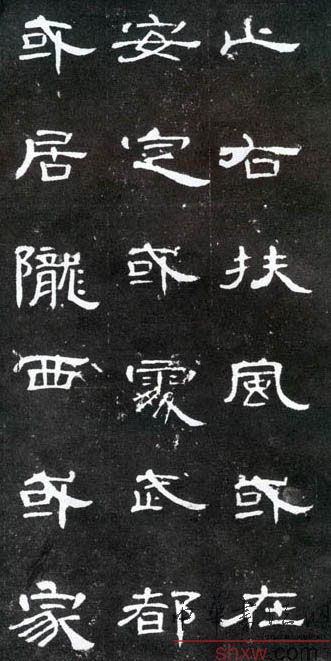 止右扶風或在
安定或處武都
或居隴西或家
shxw.com